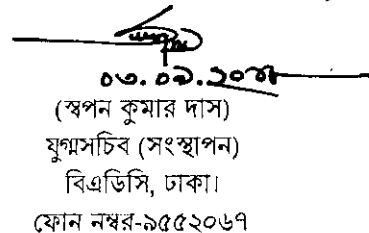 (স্বপন কুমার দাস)
যুগ্মসচিব (সংস্থাপন)
বিএডিসি, ঢাকা।
ফোন নম্বর-৯৫৫২০৬৭